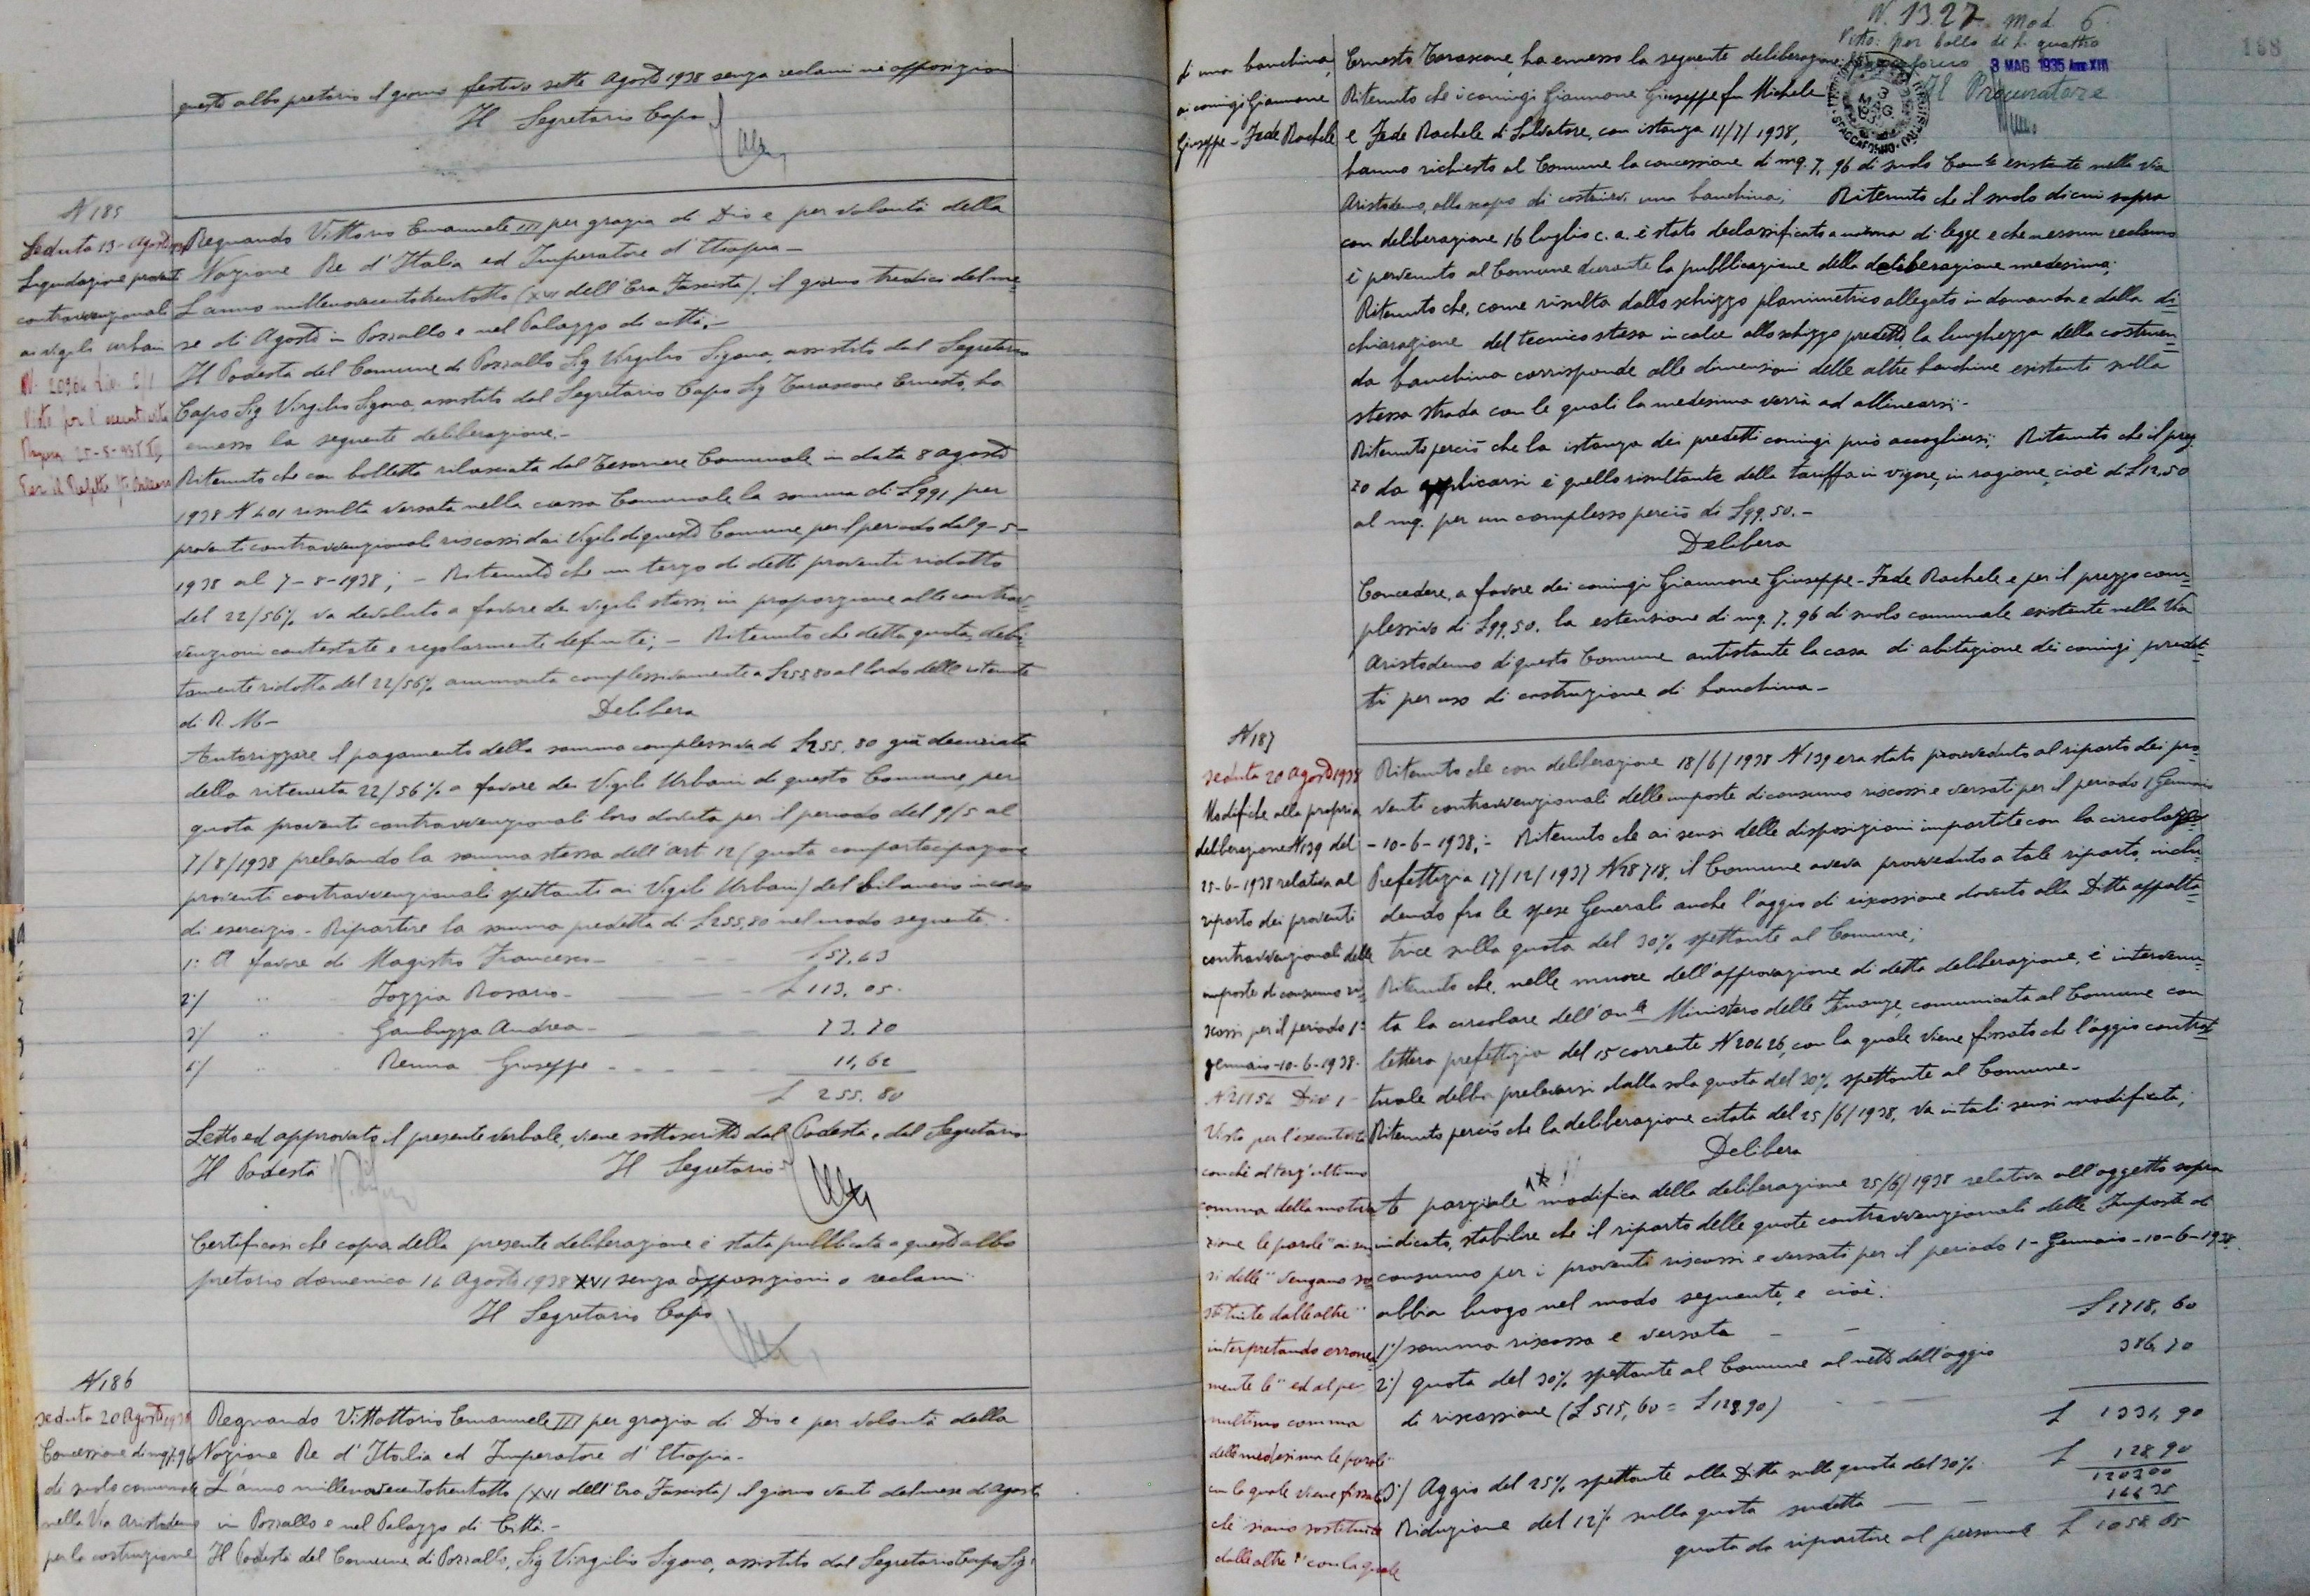 questo albo pretorio il giorno festivo sette Agosto 1938 senza reclami nè opposizioni
Il Segretario Capo
N 185
Seduta 13 - Agosto 1938
Liquidazione proventi
contravvenzionali
ai vigili urbani
Visto per l'esecutività
Per il Prefetto
Regnando Vittorio Emanuele III per grazia di Dio e per volontà della
Nazione Re d'Italia ed Imperatore d'Etiopia -
L'anno millenovecentotrentotto (XVI dell'Era Fascista), il giorno tredici del me-
se di Agosto in Pozzallo e nel Palazzo di città. -
Il Podestà del Comune di Pozzallo Sig Virgilio Sigona, assistito dal Segretario
Capo Sig Virgilio Sigona, assistito dal Segretario Capo Sig Tarascone Ernesto, ha
emesso la seguente deliberazione. -
Ritenuto che con bolletta rilasciata dal Tesoriere Comunale in data 8 agosto
1938 N 401 risulta versata nella cassa Comunale la somma di L 991 per
proventi contravvenzionali riscossi dai Vigili di questo Comune per il periodo dal 9-5-
1938 al 7-8-1938; - Ritenuto che un terzo di detti proventi ridotto
del 22/56% va devoluto a favore dei vigili stessi in proporzione alle contrav-
venzioni contestate e regolarmente definite; - Ritenuto che detta quota, debi-
tamente ridotta del 22/56% ammonta complessivamente a L 255,80 al lordo delle ritenute
di R. M -
Delibera
Autorizzare il pagamento della somma complessiva di L 255,80 già decurtata
della ritenuta 22/56% a favore dei Vigili Urbani di questo Comune, per
quota proventi contravvenzionali loro dovuta per il periodo del 9/5 al
7/8/1938 prelevando la somma stessa dell'art 12 (quota compartecipazione
proventi contravvenzionali spettanti ai Vigili Urbani) del bilancio in corso
di esercizio - Ripartire la somma predetta di L 255,80 nel modo seguente. -
1° A favore di Magistro Francesco - L 57,43
2°/ " " Iozzia Rosario - L 113,05
3°/ " " Gambuzza Andrea - 73.70
4°/ " " Renna Giuseppe - 11,62
L 255.80
Letto ed approvato il presente verbale, viene sottoscritto dal Podestà e dal Segretario
Il Podestà Il Segretario
Certificasi che copia della presente deliberazione è stata pubblicata a questo albo
pretorio domenica 14 Agosto 1938 XVI senza opposizioni o reclami
Il Segretario Capo
N 186
seduta 20 Agosto 1938
Concessione di mq 7.96
di suolo comunale
nella Via Aristodemo
per la costruzione
Regnando Vittottorio Emanuele III per grazia di Dio e per volontà della
Nazione Re d'Italia ed Imperatore d'Etiopia -
L'anno millenovecentotrentotto (XVI dell'Era Fascista) il giorno venti del mese di Agosto
in Pozzallo e nel Palazzo di Città. -
Il Podestà del Comune di Pozzallo, Sig Virgilio Sigona, assistito dal Segretario Capo Sig
N. 1327 mod 6
Visto: per bollo di L. quattro
3 MAG 1935 Anno XIII
Il Procuratore
188
di una banchina
ai coniugi Giannone
Giuseppe - Fede Rachele
Ernesto Tarascone, ha emesso la seguente deliberazione:
Ritenuto che i coniugi Giannone Giuseppe fu Michele
e Fede Rachele di Salvatore, con istanza 11/7/1938,
hanno richiesto al Comune la concessione di mq. 7,96 di suolo Com.le esistente nella Via
Aristodemo, allo scopo di costruirvi una banchina; Ritenuto che il suolo di cui sopra
con deliberazione 16 luglio c. a. è stato declassificato a norma di legge e che nessun reclamo
è pervenuto al Comune durante la pubblicazione della deliberazione medesima;
Ritenuto che, come risulta dallo schizzo planimetrico allegato in domanda e dalla di-
chiarazione del tecnico stesa in calce allo schizzo predetto la lunghezza della costruen-
da banchina corrisponde alle dimensioni delle altre banchine esistenti nella
stessa strada con le quali la medesima verrà ad allinearsi. -
Ritenuto perciò che la istanza dei predetti coniugi può accogliersi; Ritenuto che il prez-
zo da applicarsi è quello risultante della tariffa in vigore, in ragione, cioè di L 12,50
al mq. per un complesso perciò di L 99,50. -
Delibera
Concedere, a favore dei coniugi Giannone Giuseppe - Fede Rachele e per il prezzo com-
plessivo di L 99,50, la estensione di mq. 7,96 di suolo comunale esistente nella Via
Aristodemo di questo Comune antistante la casa di abitazione dei coniugi predet-
ti per uso di costruzione di banchina -
N 187
seduta 20 Agosto 1938
Modifiche alla propria
deliberazione N 139 del
25-6-1938 relativa al
riparto dei proventi
contravvenzionali delle
imposte di consumo ri-
scossi per il periodo 1°
gennaio - 10-6-1938.
N 21154 Div 1 -
Visto per l'esecutività
conchè al terz'ultimo
comma della motiva-
zione le parole "ai sen-
si delle" vengano so-
stituite dalle altre "
interpretando erronea-
mente le" ed al pe-
nultimo comma
della medesima le parole "
con la quale viene fissato
che" siano sostituite
dalle altre "con la quale
Ritenuto che con deliberazione 18/6/1938 N 139 era stato provveduto al riparto dei pro-
venti contravvenzionali delle imposte di consumo riscossi e versati per il periodo 1 Gennaio
- 10-6-1938; - Ritenuto che ai sensi delle disposizioni impartite con la circolare
Prefettizia 17/12/1937 N 28718, il Comune aveva provveduto a tale riparto, inclu-
dendo fra le spese Generali anche l'aggio di riscossione dovuto alla Ditta appalta-
trice sulla quota del 30% spettante al Comune;
Ritenuto che, nelle more dell'approvazione di detta deliberazione, è intervenu-
ta la circolare dell'On.le Ministero delle Finanze, comunicata al Comune con
lettera prefettizia del 15 corrente N 20426, con la quale viene fissato che l'aggio contrat-
tuale debba prelevarsi dalla sola quota del 30% spettante al Comune -
Ritenuto perciò che la deliberazione citata del 25/6/1938, va in tali sensi modificata;
Delibera
A parziale modifica della deliberazione 25/6/1938 relativa all'oggetto sopra
indicato, stabilire che il riparto delle quote contravvenzionali delle Imposte di
consumo per i proventi riscossi e versati per il periodo 1 - Gennaio - 10-6-1938
abbia luogo nel modo seguente, e cioè:
1°/ somma riscossa e versata - - L 1718,60
2°/ quota del 30% spettante al Comune al netto dell'aggio 386,70
di riscossione (L 515,60 = L 128,90) L 1331,90
3°/ Aggio del 25% spettante alla Ditta sulla quota del 30% L 128,90
120300
Riduzione del 12% sulla quota sudetta 14435
quota da ripartire al personale L 1058.65